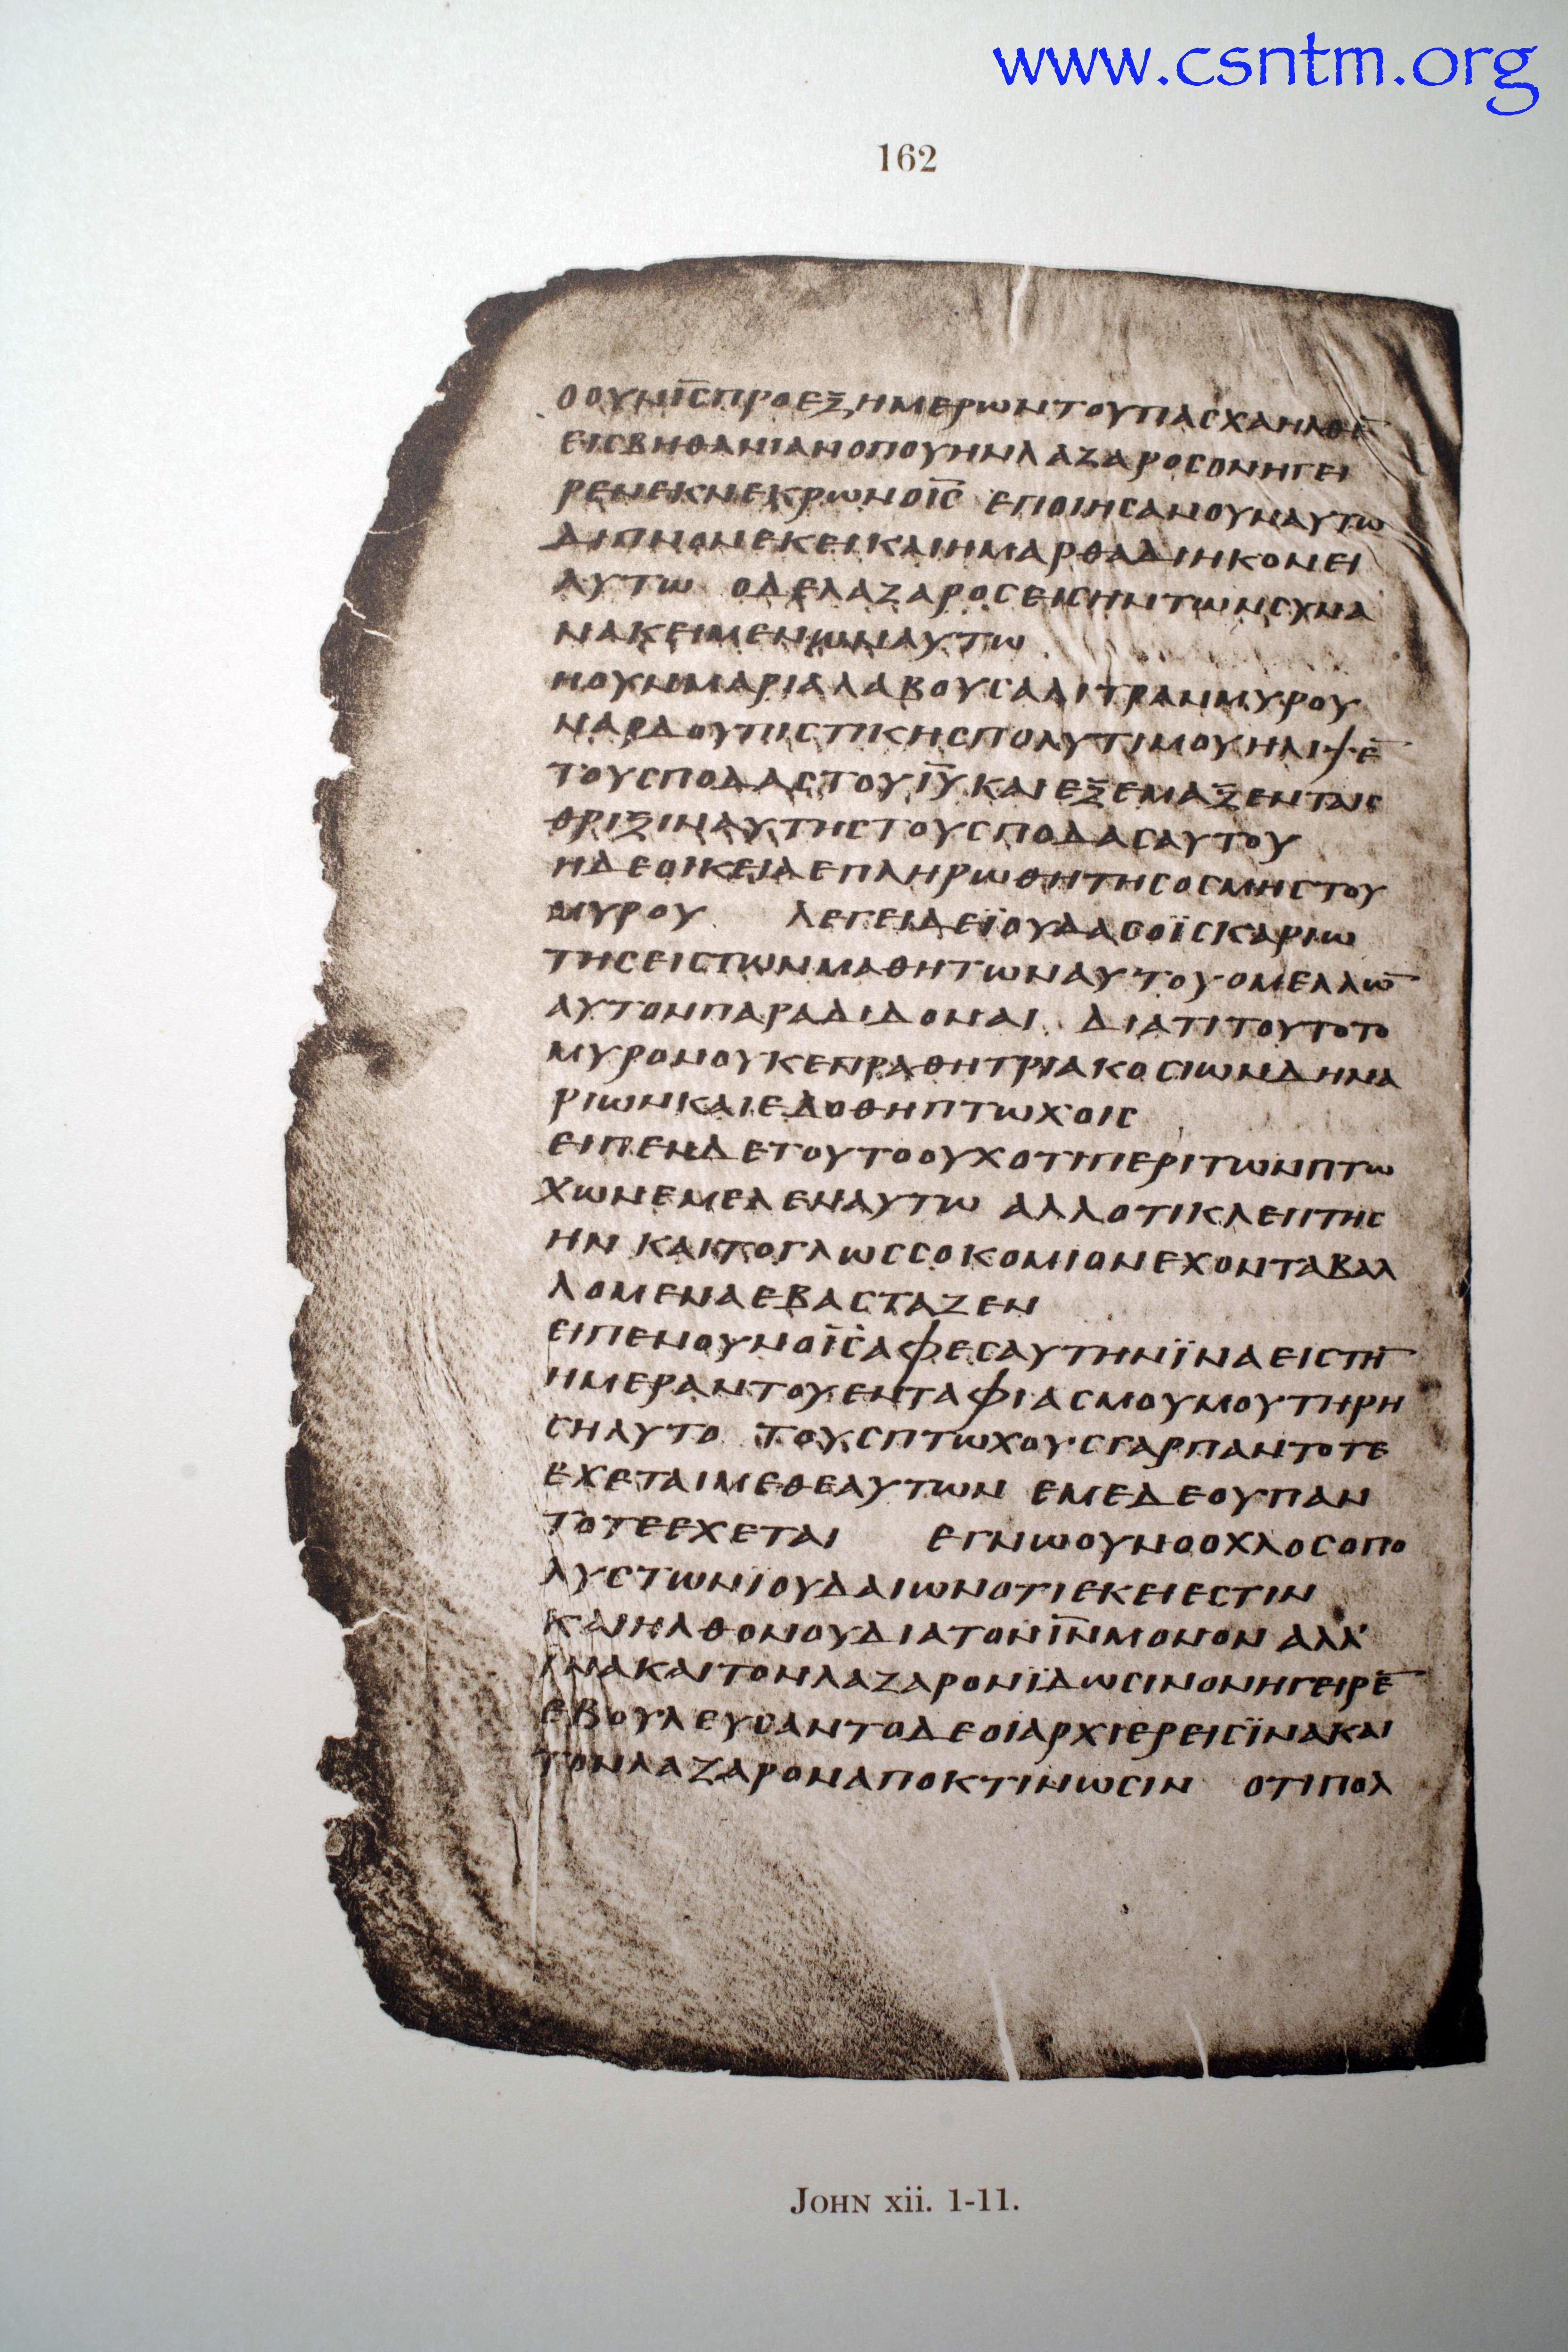 www.csntm.org
162
ΟΟΥΝΙ̅С̅ΠΡΟΕΞΗΜΕΡωΝΤΟΥΠΑСΧΑΗΛΘΕ̅
ΕΙСΒΗΘΑΝΙΑΝΟΠΟΥΗΝΛΑΖΑΡΟСΟΝΗΓΕΙ
ΡΕΝΕΚΝΕΚΡωΝΟΙ̅С̅ ΕΠΟΙΗСΑΝΟΥΝΑΥΤω
ΔΙΠΝΟΝΕΚΕΙΚΑΙΗΜΑΡΘΑΔΙΗΚΟΝΕΙ
ΑΥΤω ΟΔΕΛΑΖΑΡΟСΕΙСΗΝΤωΝСΥΝΑ
ΝΑΚΕΙΜΕΝωΝΑΥΤω
ΗΟΥΝΜΑΡΙΑΛΑΒΟΥСΑΛΙΤΡΑΝΜΥΡΟΥ
ΝΑΡΔΟΥΠΙСΤΙΚΗСΠΟΛΥΤΙΜΟΥΗΛΙΨΕ̅
ΤΟΥСΠΟΔΑСΤΟΥΙ̅Υ̅ΚΑΙΕΞΕΜΑΞΕΝΤΑΙС
ΘΡΙΞΙΝΑΥΤΗСΤΟΥСΠΟΔΑСΑΥΤΟΥ
ΗΔΕΟΙΚΕΙΑΕΠΛΗΡωΘΗΤΗСΟСΜΗСΤΟΥ
ΜΥΡΟΥ ΛΕΓΕΙΔΕΪΟΥΔΑСΟΪСΚΑΡΙω
ΤΗСΕΙСΤωΝΜΑΘΗΤωΝΑΥΤΟΥΟΜΕΛΛω̅
ΑΥΤΟΝΠΑΡΑΔΙΔΟΝΑΙ ΔΙΑΤΙΤΟΥΤΟΤΟ
ΜΥΡΟΝΟΥΚΕΠΡΑΘΗΤΡΙΑΚΟСΙωΝΔΗΝΑ
ΡΙωΝΚΑΙΕΔΟΘΗΠΤωΧΟΙС
ΕΙΠΕΝΔΕΤΟΥΤΟΟΥΧΟΤΙΠΕΡΙΤωΝΠΤω
ΧωΝΕΜΕΛΕΝΑΥΤω ΑΛΛΟΤΙΚΛΕΠΤΗС
ΗΝ ΚΑΙΤΟΓΛωССΟΚΟΜΙΟΝΕΧΟΝΤΑΒΑΛ
ΛΟΜΕΝΑΕΒΑСΤΑΖΕΝ
ΕΙΠΕΝΟΥΝΟΙ̅С̅ΑΦΕСΑΥΤΗΝΪΝΑΕΙСΤΗ̅
ΗΜΕΡΑΝΤΟΥΕΝΤΑΦΙΑСΜΟΥΜΟΥΤΗΡΗ
СΗΑΥΤΟ ΤΟΥСΠΤωΧΟΥСΓΑΡΠΑΝΤΟΤΕ
ΕΧΕΤΑΙΜΕΘΕΑΥΤωΝ ΕΜΕΔΕΟΥΠΑΝ
ΤΟΤΕΕΧΕΤΑΙ ΕΓΝωΟΥΝΟΟΧΛΟСΟΠΟ
ΛΥСΤωΝΪΟΥΔΑΙωΝΟΤΙΕΚΕΙΕСΤΙΝ
ΚΑΙΗΛΘΟΝΟΥΔΙΑΤΟΝΙ̅Ν̅ΜΟΝΟΝΑΛΛ'
ΙΝΑΚΑΙΤΟΝΛΑΖΑΡΟΝΪΔωСΙΝΟΝΗΓΕΙΡΕ̅
ΕΒΟΥΛΕΥСΑΝΤΟΔΕΟΙΑΡΧΙΕΡΕΙСΪΝΑΚΑΙ
ΤΟΝΛΑΖΑΡΟΝΑΠΟΚΤΙΝωСΙΝ ΟΤΙΠΟΛ
JOHN xii. 1-11.